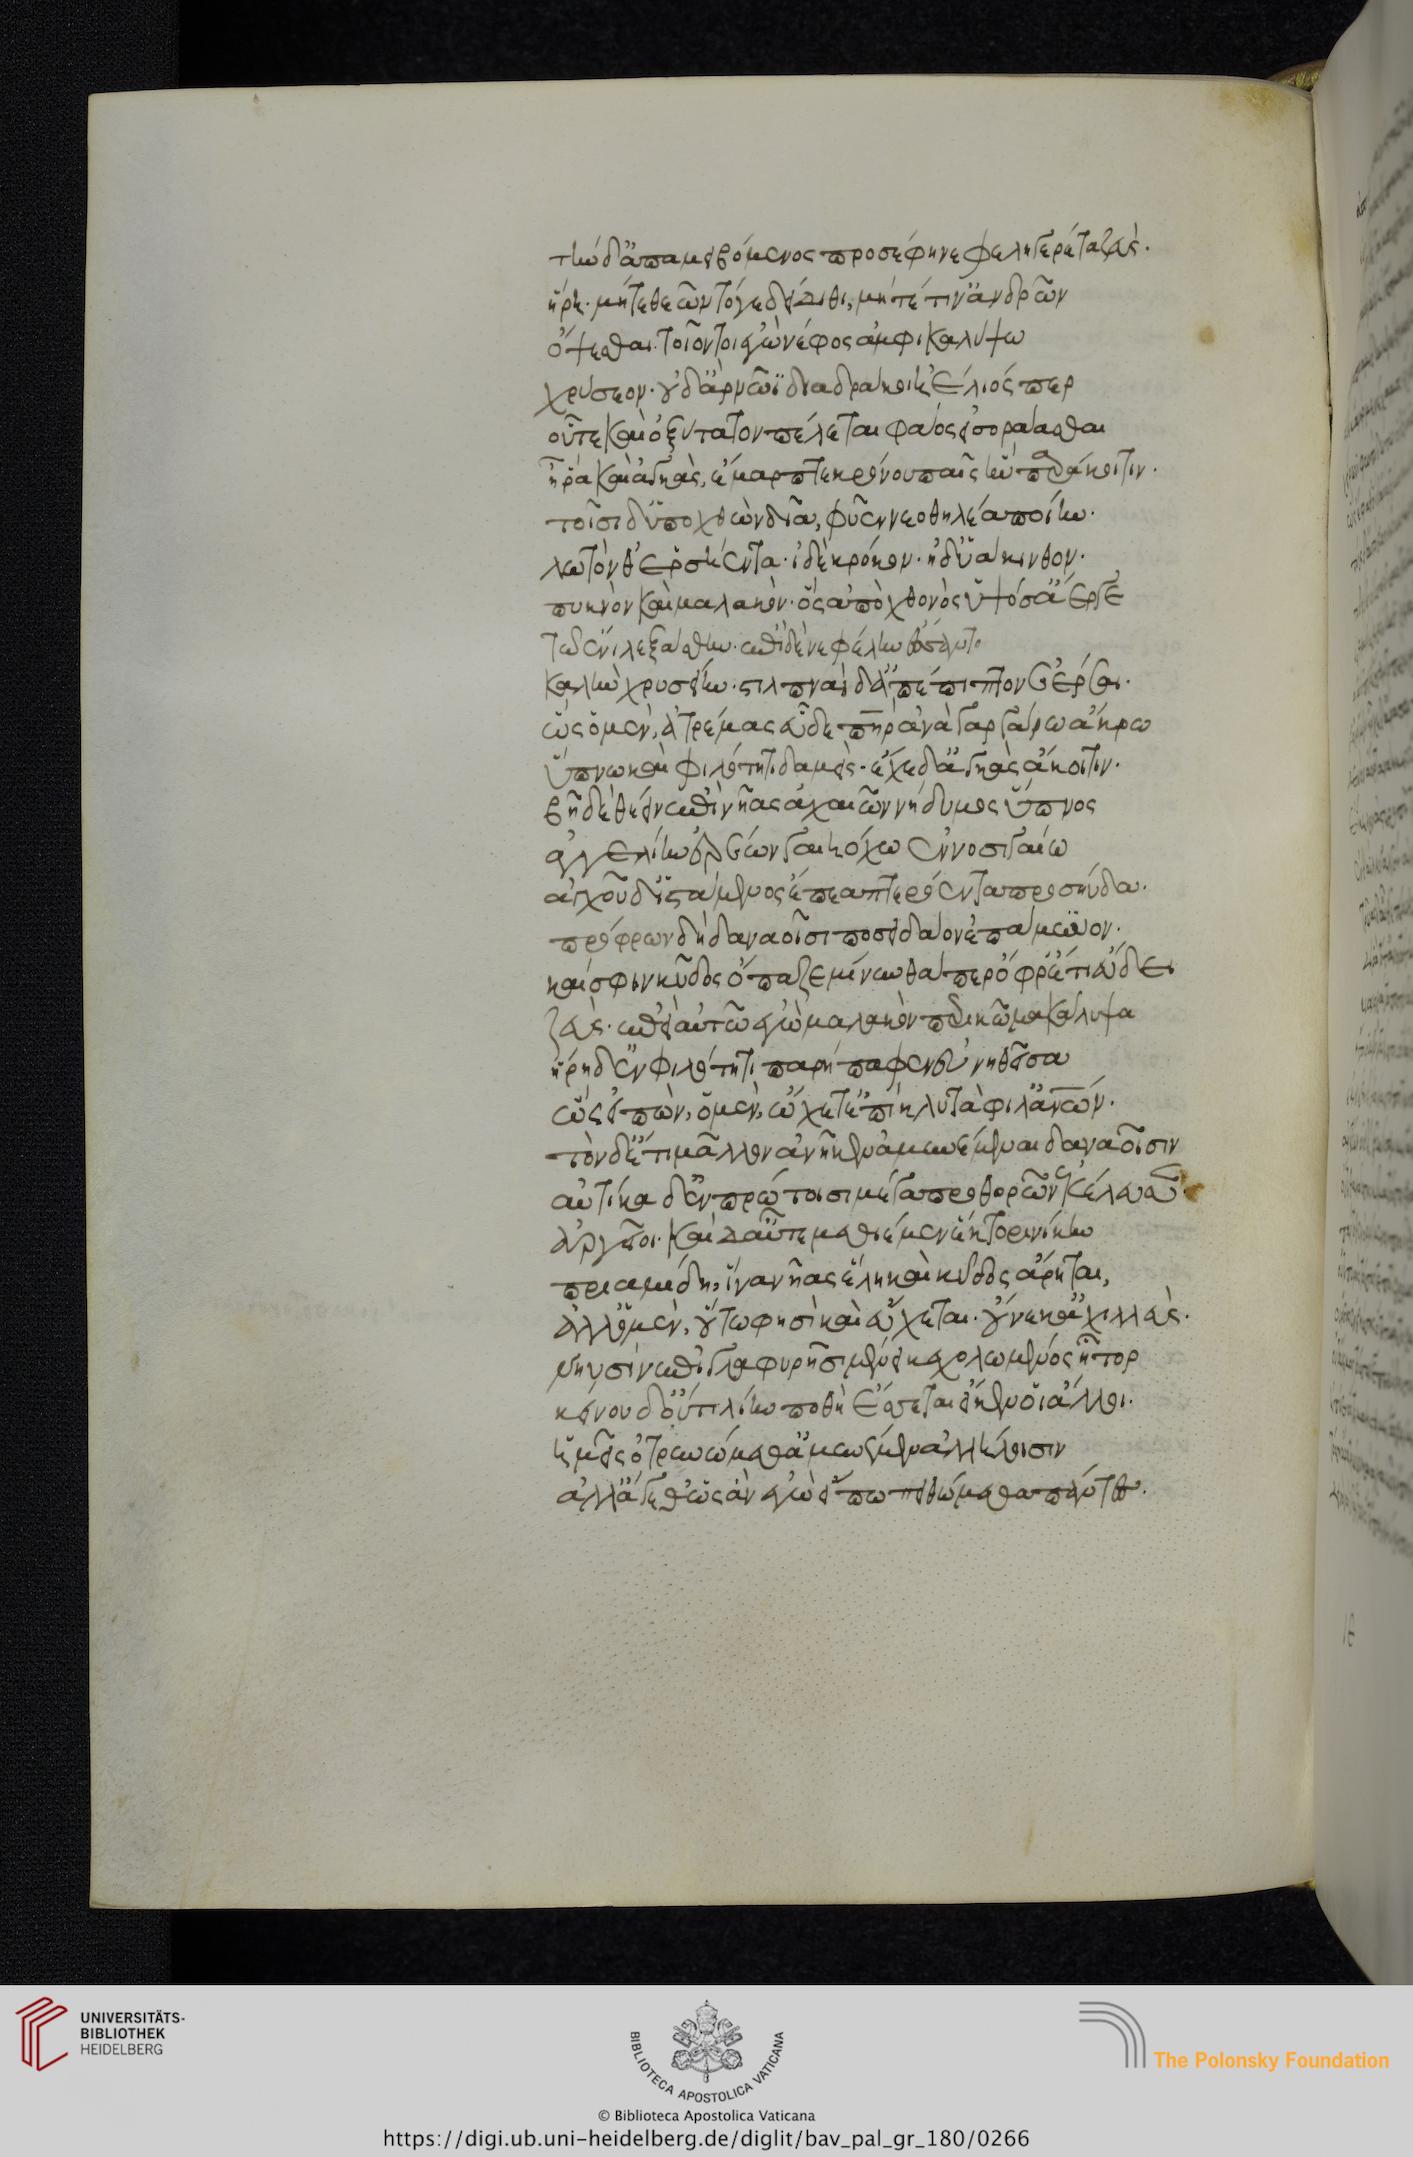 τὴν δ' ἀπαμειβόμενος προσέφη νεφεληγερέτα ζεύς.
ἥρη· μήτε θεῶν τόγε δείδιθι, μήτέ τιν' ἀνδρῶν
ὄψεσθαι· τοῖόν τοι ἐγὼ νέφος ἀμφικαλύψω
χρύσεον· οὐδ' ἂρ νῶϊ διαδράκοι ἠέλιός περ
οὗτε καὶ ὀξύτατον πέλεται φάος εἰσοράασθαι
ἦ ῥα καὶ ἀγκὰς ἔμαρπτε κρόνου παῖς ἣν παράκοιτιν.
τοῖσι δ' ὑπὸ χθὼν δῖα, φύεν νεοθηλέα ποίην.
λωτόν θ' ἑρσήεντα· ἰδὲ κρόκον· ἠδ' ὑάκινθον.
πυκνὸν καὶ μαλακὸν· ὃς ἀπὸ χθονὸς ὑψόσ' ἄεργε
τῷ ἔνι λεξάσθην· ἐπὶ δὲ νεφέλην ἕσαντο
καλὴν χρυσείην· στιλπναὶ δ' ἀπέπιπτον ἔερσαι.
ὣς ὁ μὲν, ἀτρέμας εὗδε πατὴρ ἀνὰ γαργάρῳ ἄκρῳ
ὕπνῳ καὶ φιλότητι δαμείς· ἔχε δ' ἀγκὰς ἄκοιτιν.
βῆ δὲ θέειν ἐπὶ νῆας ἀχαιῶν νήδυμος ὕπνος
ἀγγελίην ἐρέων γαιηόχῳ ἐννοσιγαίῳ
ἀγχοῦ δ' ἱστάμενος ἔπεα πτερόεντα προσηύδα.
πρόφρων δὴ δαναοῖσι ποσείδαον ἐπάμυνον.
καί σφιν κῦδος ὄπαζε μίνυνθάπερ ὄφρ' ἔτι εὕδει
ζεύς. ἐπεὶ αὐτῷ ἐγὼ μαλακὸν περὶ κῶμα κάλυψα
ἥρη δ' ἐν φιλότητι παρήπαφεν εὐνηθῆναι
ὣς εἰπὼν, ὁ μὲν, ᾤχετ' ἐπὶ κλυτὰ φῦλ' ἀνθρώπων.
τὸν δ' ἔτι μᾶλλον ἀνῆκεν ἀμυνέμεναι δαναοῖσιν
αὐτίκα δ' ἐν πρώτοισι μέγα προθορὼν ἐκέλευσεν
ἀργεῖοι· καὶ δ' αὖτε μεθίεμεν ἕκτορι νίκην
πριαμίδῃ, ἵνα νῆας ἕλῃ καὶ κῦδος ἄρηται,
ἀλλ' ὁ μὲν, οὕτω φησὶ καὶ εὔχεται· οὕνεκ' ἀχιλλεὺς.
νηυσὶν ἐπὶ γλαφυρῇσι μένει κεχολωμένος ἦτορ
κείνου δ' οὔτι λίην ποθὴ ἔσσεται εἴ κεν οἱ ἄλλοι.
ἡμεῖς ὀτρυνώμεθ' ἀμυνέμεν ἀλλήλοισιν
ἀλλ' ἄγεθ' ὡς ἂν ἐγὼ εἴπω πειθώμεθα πάντες.
UNIVERSITÄTS-
BIBLIOTHEK
HEIDELBERG
BIBLIOTECA APOSTOLICA VATICANA
The Polonsky Foundation
© Biblioteca Apostolica Vaticana
https://digi.ub.uni-heidelberg.de/diglit/bav_pal_gr_180/0266